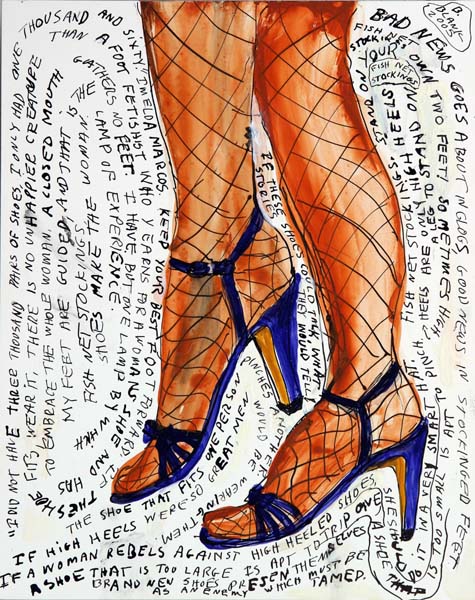 D.
BLAGG
2005
"I DID NOT HAVE THREE THOUSAND PAIRS OF SHOES, I ONLY HAD ONE THOUSAND AND SIXTY." IMELDA MARCOS
KEEP YOUR BEST FOOT FORWARD.
IF THE SHOE FITS, WEAR IT.
THERE IS NO UNHAPPIER CREATURE THAN A FOOT FETISHIST WHO YEARNS FOR A WOMANS SHOE AND HAS TO EMBRACE THE WHOLE WOMAN.
A CLOSED MOUTH GATHERS NO FEET
I HAVE BUT ONE LAMP BY WHICH MY FEET ARE GUIDED AND THAT IS THE LAMP OF EXPERIENCE
SHOES MAKE THE WOMAN
FISH NET STOCKINGS
IF THESE SHOES COULD TALK, WHAT STORIES THEY WOULD TELL
BAD NEWS GOES ABOUT IN CLOGS, GOOD NEWS IN
FISH NET STOCKINGS
YOUR OWN TWO FEET!
SOMETIMES HIGH HEELS ARE ONLY
A LEG TO STAND ON
HIGH HEELS
FISH NET STOCKINGS
THE SHOE THAT FITS ONE PERSON PINCHES ANOTHER
GREAT MEN WOULD BE WEARING THEM.
IF HIGH HEELS WERE SO
IF A WOMAN REBELS AGAINST HIGH HEELED SHOES, SHE SHOULD DO IT IN A VERY SMART HAT
A SHOE THAT IS TOO LARGE IS APT TO TRIP ONE
BRAND NEW SHOES PRESENT THEMSELVES
AS AN ENEMY WHICH MUST BE TAMED.